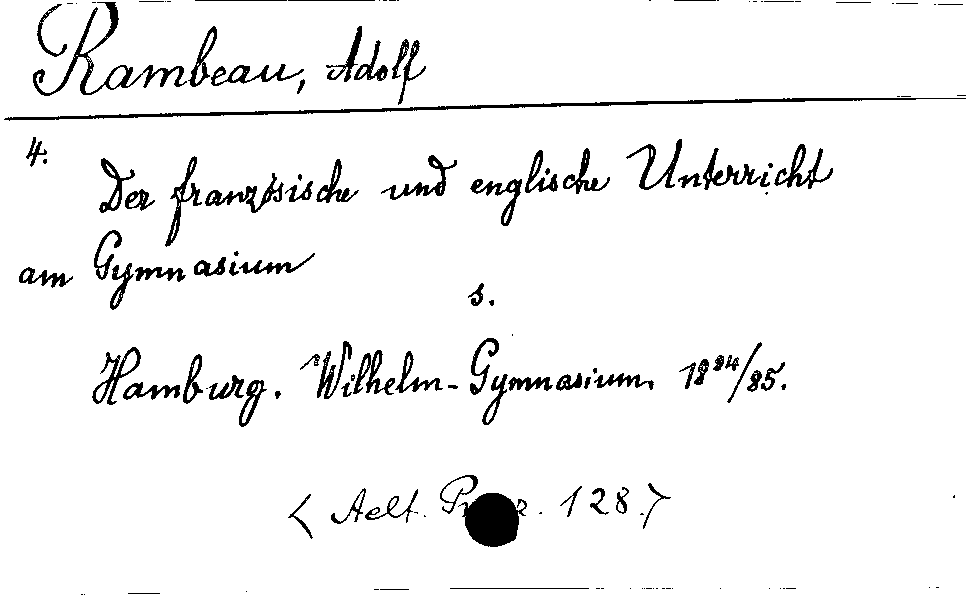 Rambeau, Adolf
4.
Der französische und englische Unterricht
am Gymnasium
s.
Hamburg. Wilhelm-Gymnasium. 1884/85.
< Aelt. 128.>